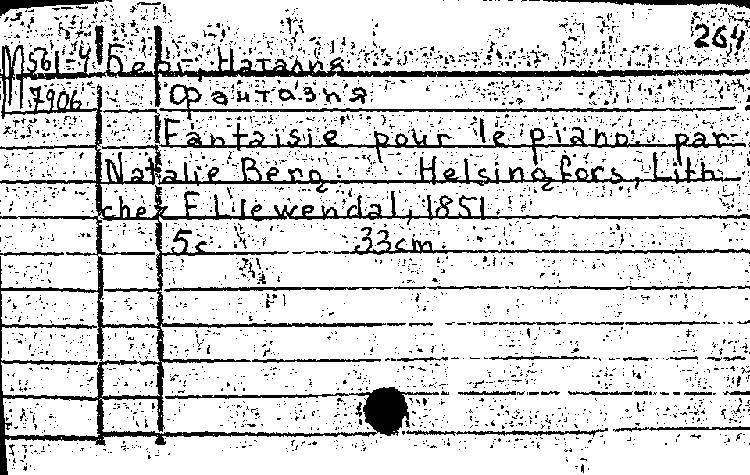 264
М561-4 Берг, Наталия
7906 Фантазия
Fantaisie pour le piano par
Natalie Berg. Helsingfors, Lith.
chez F. Liewendal, 1851.
5с. 33cm.